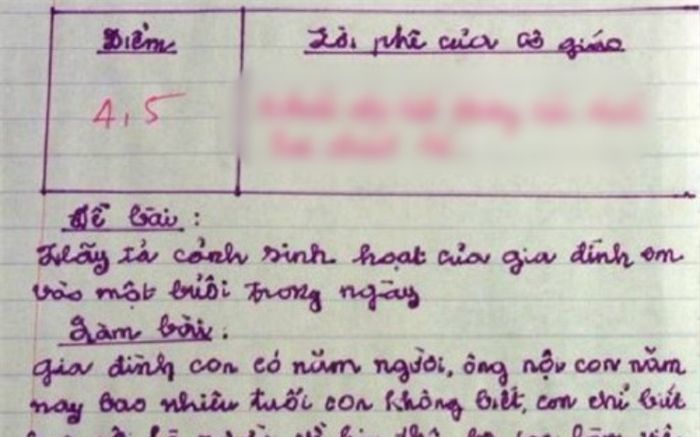 Điểm
Lời phê của cô giáo
4,5
Đề bài :
Hãy tả cảnh sinh hoạt của gia đình em
vào một buổi trong ngày
Làm bài :
gia đình con có năm người, ông nội con năm
nay bao nhiêu tuổi con không biết, con chỉ biết